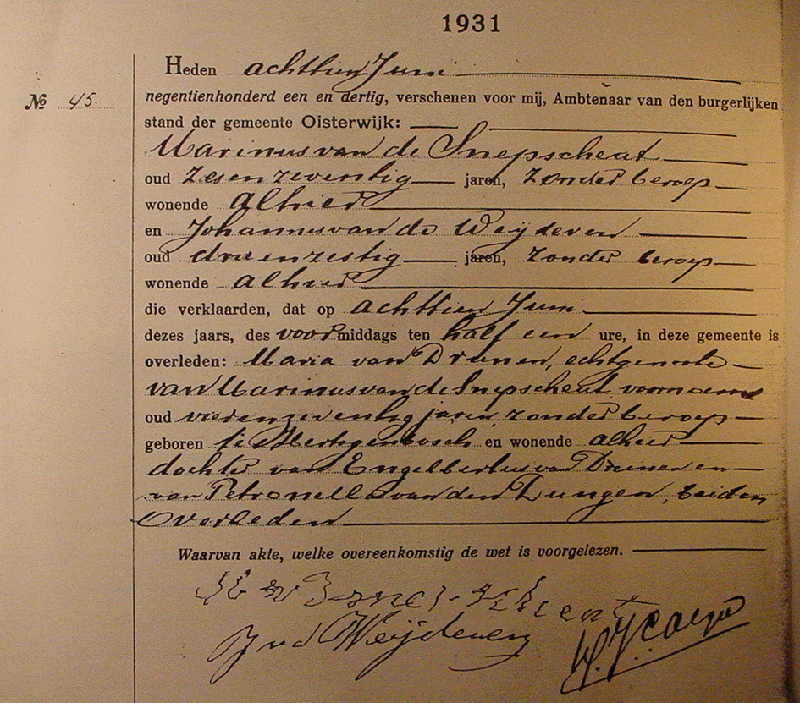 1931
Heden achttien Juni
No 45
negentienhonderd een en dertig, verschenen voor mij, Ambtenaar van den burgerlijken
stand der gemeente Oisterwijk:
Marinus van de Snepscheat
oud zesenzeventig jaren, zonder beroep
wonende alhier
en Johannes van de Weijdeven
oud drieenzestig jaren, zonder beroep
wonende alhier
die verklaarden, dat op achttien Juni
dezes jaars, des voormiddags ten half een ure, in deze gemeente is
overleden: Maria van Drunen, echtgenoote
van Marinus van de Snepscheat voornoemd
oud vierenzeventig jaren, zonder beroep
geboren te s Hertogenbosch en wonende alhier
dochter van Engelbertus van Drunen en
van Petronella van den Dungen, beiden
overleden
Waarvan akte, welke overeenkomstig de wet is voorgelezen.
J v d Weijdeven